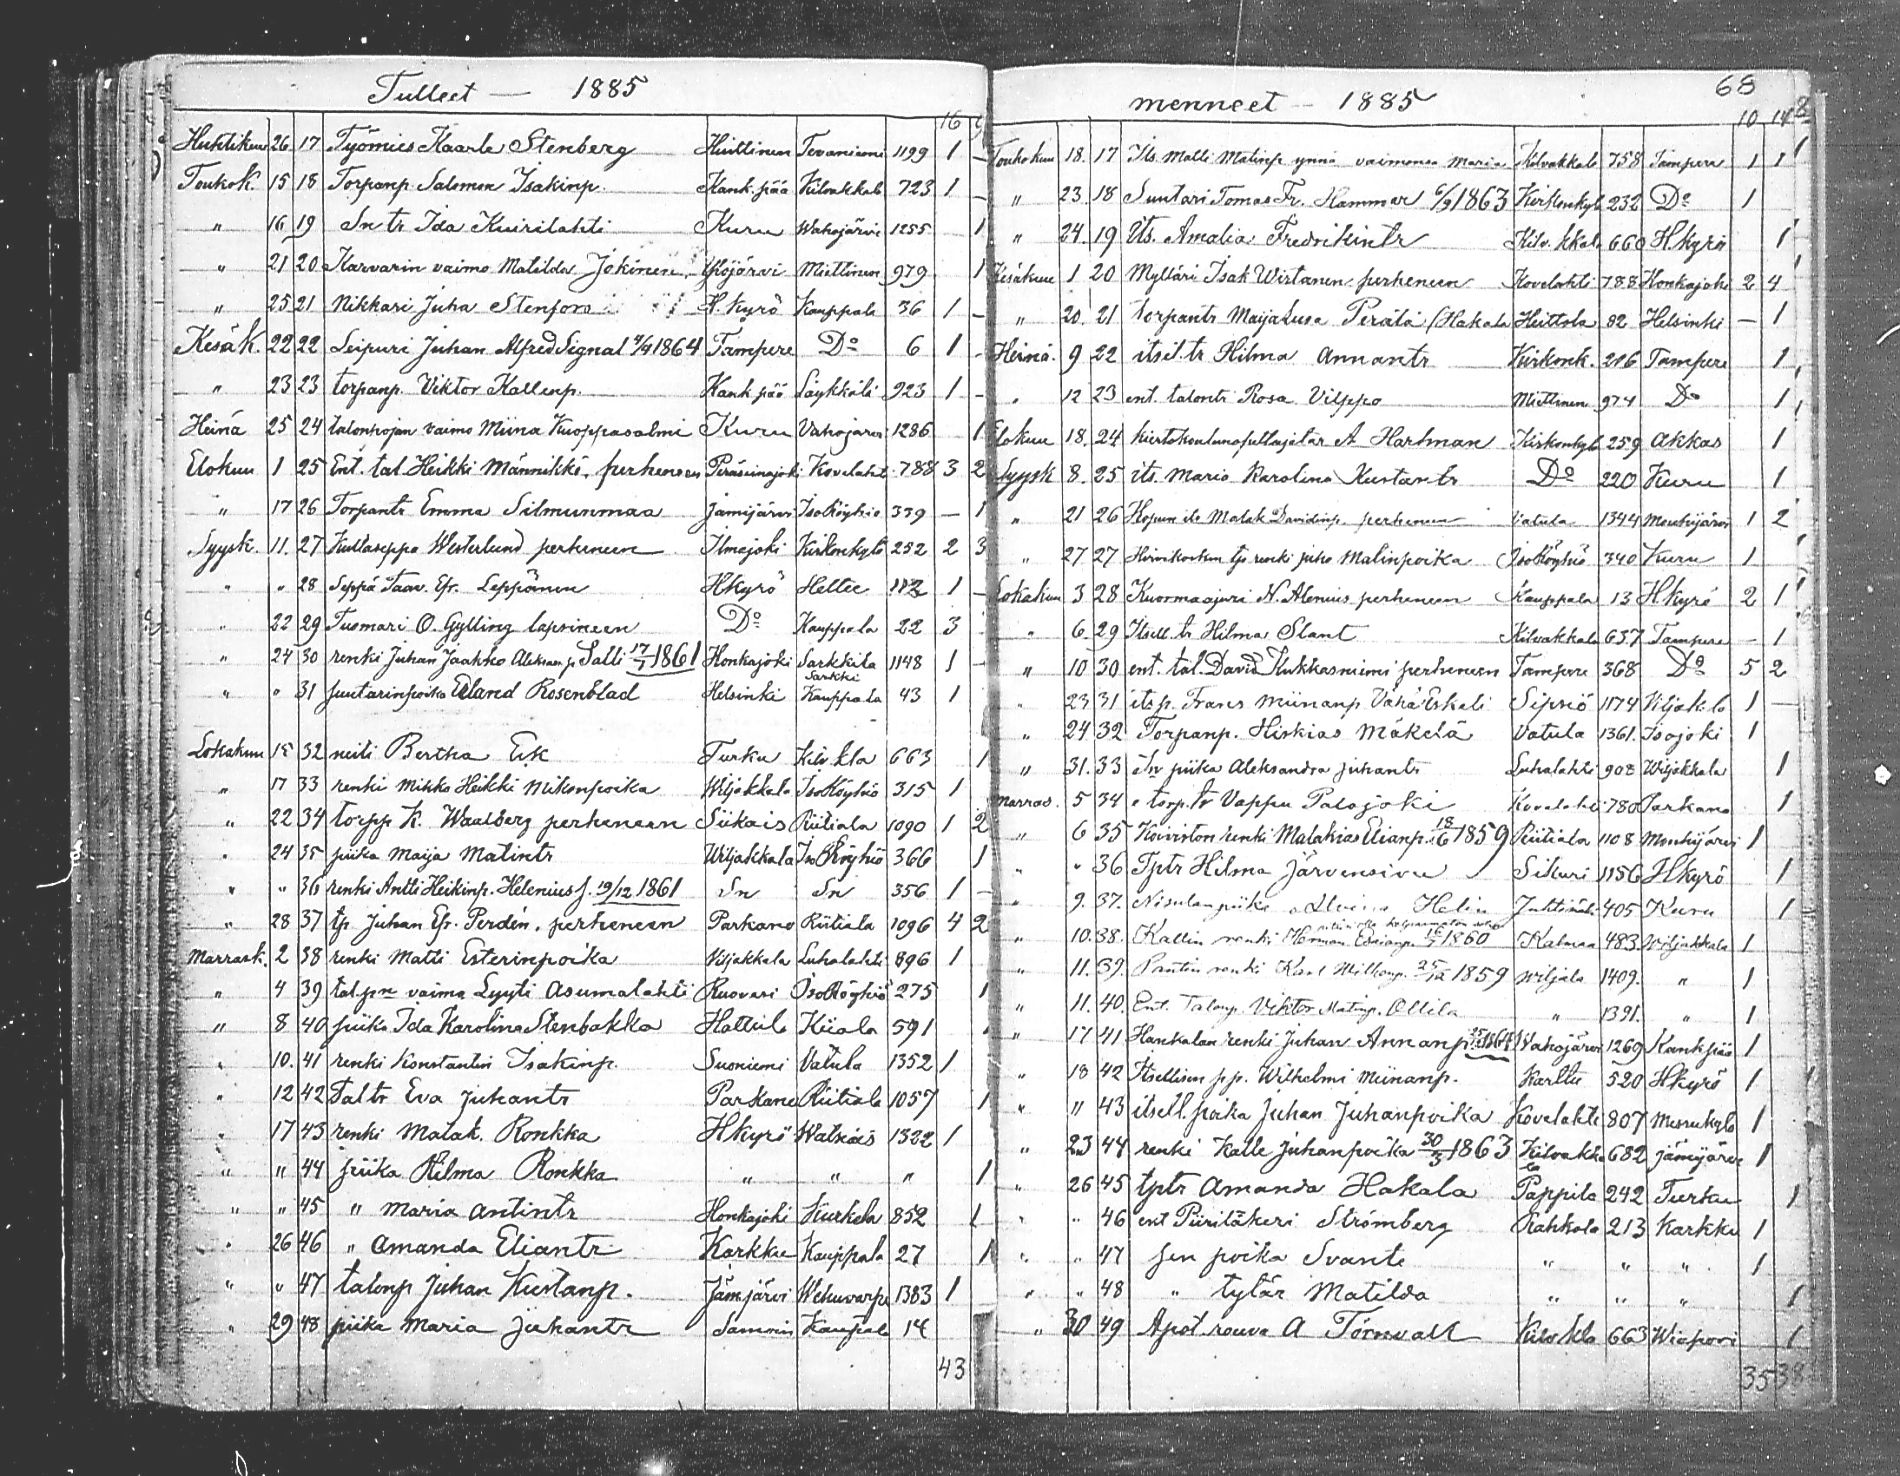 Tulleet — 1885
16
Huhtikuu 26 17 Työmies Kaarle Stenberg Huittinen Tevaniemi 1199 1 –
Toukok. 15 18 Torpanp. Salomon Isakinp. Kank.pää Kilvakkala 723 1 –
" 16 19 Sn tr Ida Kuirilahti Kuru Wahojärvi 1255 1
" 21 20 Karvarin vaimo Matilda Jokinen Ylöjärvi Miettinen 979 1
" 25 21 Nikkari Juha Stenfors H. Kyrö Kauppala 36 1 –
Kesäk. 22 22 Leipuri Juhan Alfred Signal 1864 Tampere Do 6 1 –
" 23 23 torpanp. Viktor Kallenp. Kank.pää Läykkälä 923 1 –
Heinä 25 24 talonpojan vaimo Miina Kuoppasalmi Kuru Vahojärvi 1286 1
Elokuu 1 25 Ent. tal. Heikki Männikkö, perheneen Peräseinajoki Kovelaht 788 3 2
" 17 26 Torpantr Emma Silmunmaa Jämijärvi Iso Röyhiö 339 – 1
Syysk. 11. 27 Kultaseppä Westerlund perheneen Ilmajoki Kirkonkylä 252 2 3
" " 28 Seppä Taav. Efr. Leppänen Hkyrö Heltee 112 1 –
" 22 29 Tuomari O. Gylling lapsineen Do Kauppala 22 3 –
" 24 30 renki Juhan Jaakko Aleksan.p. Salli 17/7 1861 Honkajoki Sarkkila 1148 1 –
Sarkki
" " 31 Suutarinpoika Erland Rosenblad Helsinki Kauppala 43 1
Lokakuu 15 32 neiti Bertha Ek Turku Kilv.kla 663 1
" 17 33 renki Mikko Heikki Mikonpoika Wiljakkala Iso Röyhiö 315 1
" 22 34 torpp K. Waalberg perheneen Siikais Riitiala 1090 1 2
" 24 35 piika Maija Matintr Wiljakkala Iso Röyhiö 366 1
" " 36 renki Antti Heikinp. Helenius s. 19/12 1861 Sn Sn 356 1 –
" 28 37 tp. Juhan Efr. Perdén, perheneen Parkano Riitiala 1096 4 2
Marrask. 2 38 renki Matti Esterinpoika Viljakkala Luhalahti 896 1
" 4 39 tal.pn vaimo Lyyti Asumalahti Ruovesi Iso Röyhiö 275 1
" 8 40 piika Ida Karolina Stenbakka Hattula Kiiala 591 1
" 10. 41 renki Konstantin Isakinp. Suoniemi Vatula 1352 1
" 12 42 Tal tr Eva Juhantr Parkano Riitiala 1057 1
" 17 43 renki Malak. Ronkka Hkyrö Watsiais 1322 1
" " 44 piika Hilma Ronkka " " " 1
" " 45 " Maria Antintr Honkajoki Kurkela 852 1
" 26 46 " Amanda Eliantr Karkku Kauppala 27 1
" " 47 talonp Juhan Kustanp. Jämjärvi Wehuvarpe 1383 1
" 29 48 piika Maria Juhantr Kaupal 14
43
menneet – 1885
68
10 14
Toukokuu 18. 17 Its. Matti Matinp ynnä vaimonsa Maria Kilvakkala 758 Tampere 1 1
" 23. 18 Suutari Tomas Fr. Hammar 6/9 1863 Kirkonkylä 232 Do 1
" 24. 19 Its. Amalia Fredrikintr Kilv.kkala 660 Hkyrö 1
Kesäkuu 1 20 Mylläri Isak Wirtanen perheneen Kovelahti 788 Honkajoki 2 4
" 20. 21 torpantr Maija Lusa Perälä (Hakala Heittola 82 Helsinki – 1
Heinä. 9 22 itsil. tr Hilma Annantr Kirkonk. 216 Tampere 1
" 12 23 ent. talontr Rosa Vilppo Miettinen 974 Do 1
Elokuu 18. 24 kiertokoulunopettajatar A Hartman Kirkonkyl 259 Akkas 1
Syysk 8. 25 its. Maria Karolina Kustantr Do 220 Kuru 1
" 21 26 Malak Davidinp. perheneen Vatula 1344 Mouhijärvi 1 2
" 27 27 renki Juho Matinpoika Iso Röyhiö 340 Kuru 1
Lokakuu 3 28 Kuormaajuri N. Alenius perheneen Kauppala 13 Hkyrö 2 1
" 6. 29 Itsell. tr Hilma Slant Kilvakkala 637 Tampere – 1
" 10 30 ent. tal. David Kukkasniemi perheneen Tampere 368 Do 5 2
" 23 31 itsp. Frans Miinanp. Vähä Eskeli Sipsiö 1174 Viljak.la 1 –
" 24 32 Torpanp. Hiskias Mäkelä Vatula 1361. Isojoki 1
" 31. 33 Sn piika Aleksandra Juhantr Luhalahti 908 Wiljakkala 1
Marras. 5 34 torp. tr Vappu Palojoki Kovelahti 780 Parkano 1
" 6 35 Koiviston renki Malakias Elianp. 18/6 1859 Riitiala 1108 Mouhijärvi 1
" " 36 Tptr Hilma Järvensivu Sikuri 1156 Hkyrö 1
" 9. 37. Nisulan piika Helin Juhtimäki 405 Kuru 1
" 10. 38. Kallin renki Herman 1860 Kalmaa 483 Wiljakkala 1
" 11. 39. Pantin renki Karl 1859 Wiljala 1409. " 1
" 11. 40. Ent. Talonp. Viktor Matinp. Ollila " 1391. " 1
" 17 41 Hankalan renki Juhan Annanp. Wahojärvi 1269 Kankpää 1
" 18 42 Itsellisen p.p. Wilhelmi Miinanp. Karttu 520 Hkyrö 1
" " 43 itsell. poika Juhan Juhanpoika Kovelahti 807 1
" 23 44 renki Kalle Juhanpoika 30/3 1863 Kilvakkala 682 Jämijärvi 1
" 26 45 tptr Amanda Hakala Pappila 242 Turku 1
" " 46 ent Piiritäkeri Strömberg Rahkola 213 Karkku 1
" " 47 sen poika Svante " " " 1
" " 48 " tytär Matilda " " " 1
" 30 49 Apot. rouva A Törnvall Kilv.kla 663 Wiapori 1
35 38